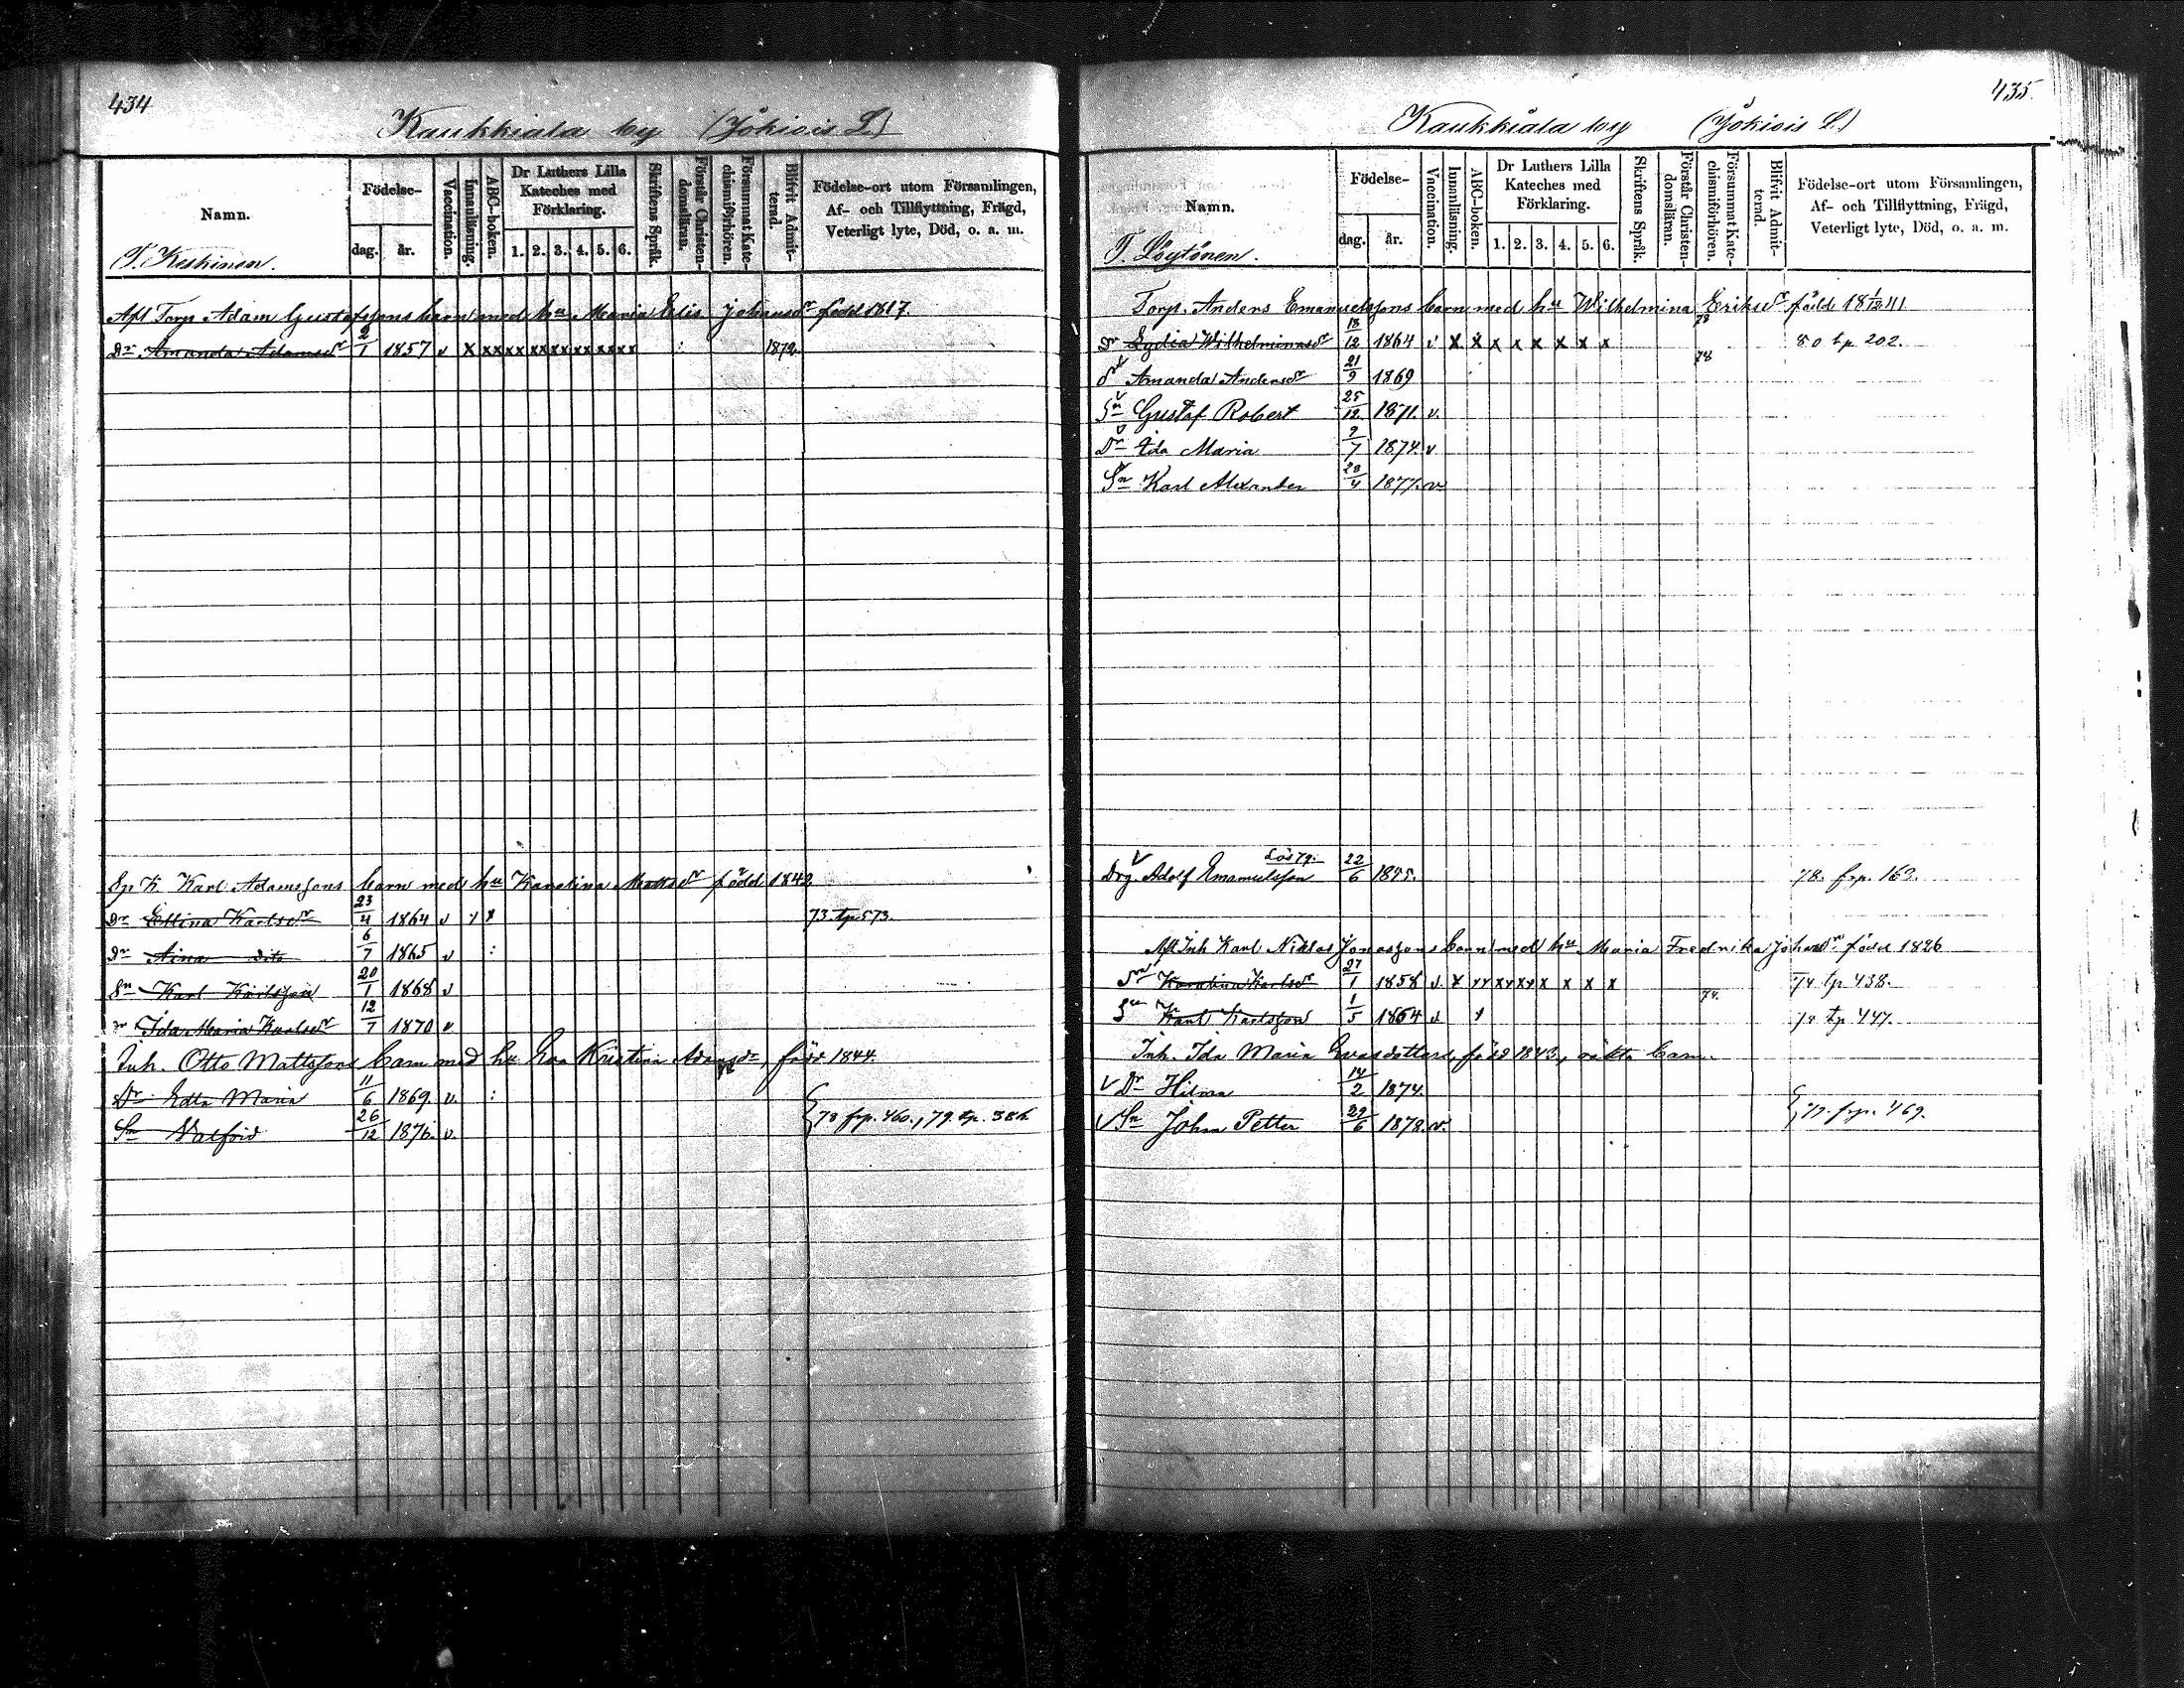 434
Kaukkiala by (Jokiois L.)
Namn.
Födelse-
dag.
år.
Vaccination.
Innanläsning.
ABC-boken.
Dr Luthers Lilla
Kateches med
Förklaring.
1. 2. 3. 4. 5. 6.
Skriftens Språk.
Förstår Christen-
domsläran.
Försummat Kate-
chismiförhören.
Blifvit Admit-
terad.
Födelse-ort utom Församlingen,
Af- och Tillflyttning, Frägd,
Veterligt lyte, Död, o. a. m.
T. Keskinen.
Afl Torp Adam Gustafssons barn med hu Maria Elis. Johansdr född 1817
Dr Amanda Adamsdr 2/1 1857 v x xx xx xx xx xx xx xx : 1872.
Sp K Karl Adamssons barn med hu Karolina Mattsdr född 1842
Dr Ellina Karlsdr 23/4 1864 v 73. tp 573.
Dr Aina dito 6/7 1865 v :
Sn Karl Karlsson 20/1 1868 v
Dr Ida Maria Karlsdr 12/7 1870 v
Inh. Otto Mattssons barn med hu Eva Kristina Adamsdr, född 1844.
Dr Edla Maria 11/6 1869 v. :
Sn Valfrid 26/12 1876. v.
78 frp. 460., 79. tp. 386
435.
Kaukkiala by (Jokiois L.)
Namn.
Födelse-
dag.
år.
Vaccination.
Innanläsning.
ABC-boken.
Dr Luthers Lilla
Kateches med
Förklaring.
1. 2. 3. 4. 5. 6.
Skriftens Språk.
Förstår Christen-
domsläran.
Försummat Kate-
chismiförhören.
Blifvit Admit-
terad.
Födelse-ort utom Församlingen,
Af- och Tillflyttning, Frägd,
Veterligt lyte, Död, o. a. m.
T. Löytönen.
Torp. Anders Emanuelssons barn med hu Wilhelmina Eriksdr född 18 1/12 41
Dr Lydia Wilhelminasdr 18/12 1864 v x x x x x x x x 78 80 tp 202.
Dr Amanda Andersdr 21/9 1869 78
Sn Gustaf Robert 25/12 1871. v.
Dr Ida Maria 9/7 1874. v
Sn Karl Alexander 28/4 1877. v.
Lös 79.
Drg. Adolf Emanuelsson 22/6 1875. 78. frp. 163.
Afl Inh Karl Niklas Jonassons barn med hu Maria Fredrika Johansdr född 1826
Karolina Karlsdr 27/1 1858 v. x xx xx xx x x x x 74 tp 438.
Sn Karl Karlsson 1/5 1864 v 74. tp 447.
Inh. Ida Maria Evasdotters, född 1843, oäkta barn.
v Dr Hilma 14/2 1874.
v Sn Johan Petter 29/6 1878. v.
77. frp. 469.